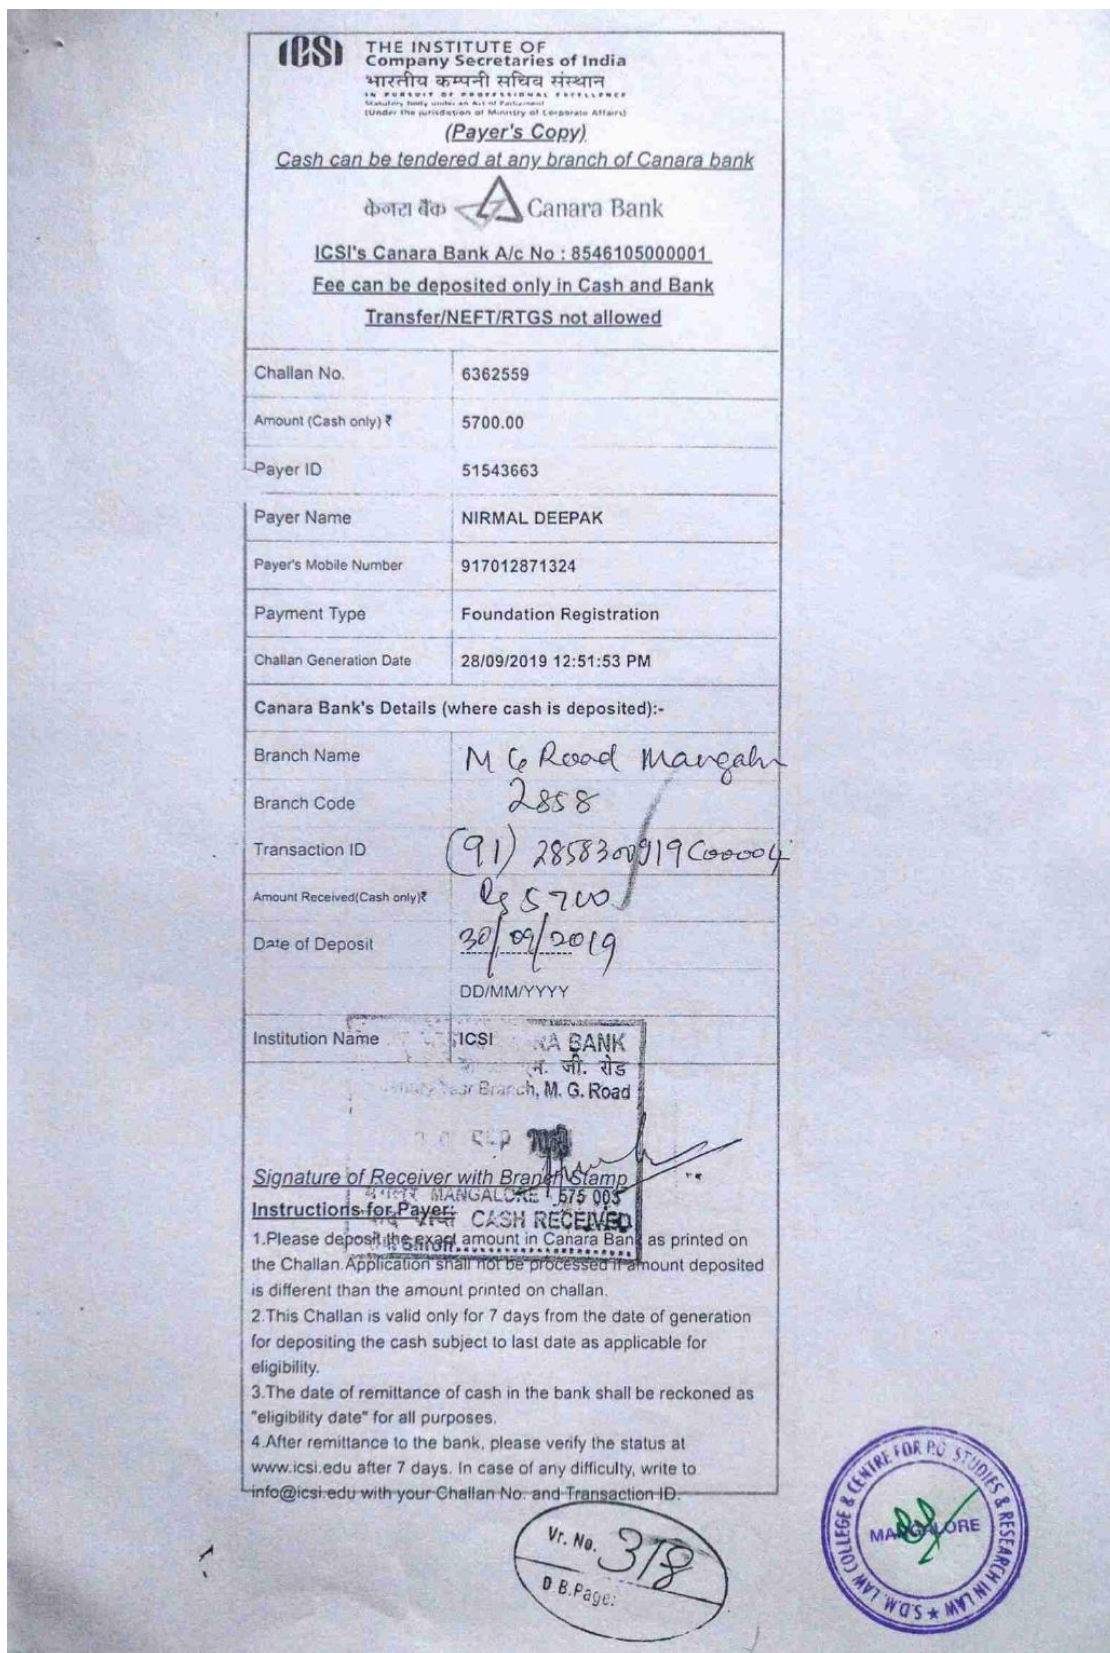 ICSI
THE INSTITUTE OF
Company Secretaries of India
भारतीय कम्पनी सचिव संस्थान
IN PURSUIT OF PROFESSIONAL EXCELLENCE
Statutory body under an Act of Parliament
(Under the jurisdiction of Ministry of Corporate Affairs)
(Payer's Copy)
Cash can be tendered at any branch of Canara bank
केनरा बैंक Canara Bank
ICSI's Canara Bank A/c No : 8546105000001
Fee can be deposited only in Cash and Bank
Transfer/NEFT/RTGS not allowed
Challan No. 6362559
Amount (Cash only) ₹ 5700.00
Payer ID 51543663
Payer Name NIRMAL DEEPAK
Payer's Mobile Number 917012871324
Payment Type Foundation Registration
Challan Generation Date 28/09/2019 12:51:53 PM
Canara Bank's Details (where cash is deposited):-
Branch Name M G Road
Branch Code 2858
Transaction ID (91) 2858300919C00004
Amount Received(Cash only)₹ Rs 5700
Date of Deposit 30/09/2019
DD/MM/YYYY
Institution Name ICSI
BANK
जी. रोड
Branch, M. G. Road
Signature of Receiver with Branch Stamp
MANGALORE 575 003
Instructions for Payer:
CASH RECEIVED
1.Please deposit the exact amount in Canara Bank as printed on
the Challan.Application shall not be processed if amount deposited
is different than the amount printed on challan.
2.This Challan is valid only for 7 days from the date of generation
for depositing the cash subject to last date as applicable for
eligibility.
3.The date of remittance of cash in the bank shall be reckoned as
"eligibility date" for all purposes.
4.After remittance to the bank, please verify the status at
www.icsi.edu after 7 days. In case of any difficulty, write to
info@icsi.edu with your Challan No. and Transaction ID.
Vr. No. 318
D B.Page:
S.D.M. LAW COLLEGE & CENTRE FOR P.G. STUDIES & RESEARCH IN LAW
MANGALORE